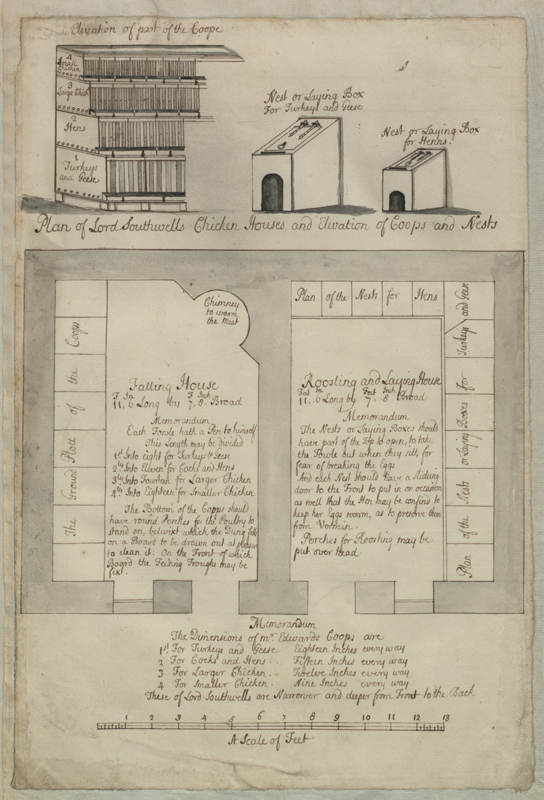 Elevation of part of the Coope
4
Small Chicken
3
Large Chick
2
Hens
1
Turkeys
and Geese
Nest or Laying Box
For Turkeys and Geese
Nest or Laying Box
for Henns.
Plan of Lord Southwells Chicken Houses, and Elevation of Coops and Nests
The Ground Plott of the Coops
Chimney
to warm
the Meat
Fatting House
F. In. F. Inch
11, 6 Long by 7, 8 Broad
Memorandum
Each Foule hath a Pen to himself
This Length may be divided
1st Into Eight for Turkeys & Geese
2ly Into Eleven for Cocks and Hens
3ly Into Fourteen for Larger Chicken
4ly Into Eighteen for Smaller Chicken
The Bottom of the Coops should
have round Perches for the Poultry to
stand on, betwixt which the Dung falls
on a Board to be drawn out at pleasure
to clean it. On the Front of which
Board the Feeding Troughs may be
fixt.
Plan of the Nests for Hens
Roosting and Laying House
Feet In. Feet Inch
11, 6 Long by 7, 8 Broad
Memorandum
The Nests or Laying Boxes should
have part of the Top to open, to take
the Fowls out when they sitt, for
fear of breaking the Eggs
And each Nest should have a Slideing
door to the Front to put in on occasion
as well that the Hen may be confin'd to
keep her Eggs warm, as to preserve them
from Vermin.
Perches for Roosting may be
put over head
Plan of the Nests or Laying Boxes for Turkeys and Geese
Memorandum
The Dimensions of Mr. Edwards Coops are
1st For Turkeys and Geese Eighteen Inches every way
2 For Cocks and Hens Fifteen Inches every way
3 For Larger Chicken Twelve Inches every way
4 For Smaller Chicken Nine Inches every way
These of Lord Southwells are Narrower and deeper from Front to the Back
1 2 3 4 5 6 7 8 9 10 11 12 13
A Scale of Feet